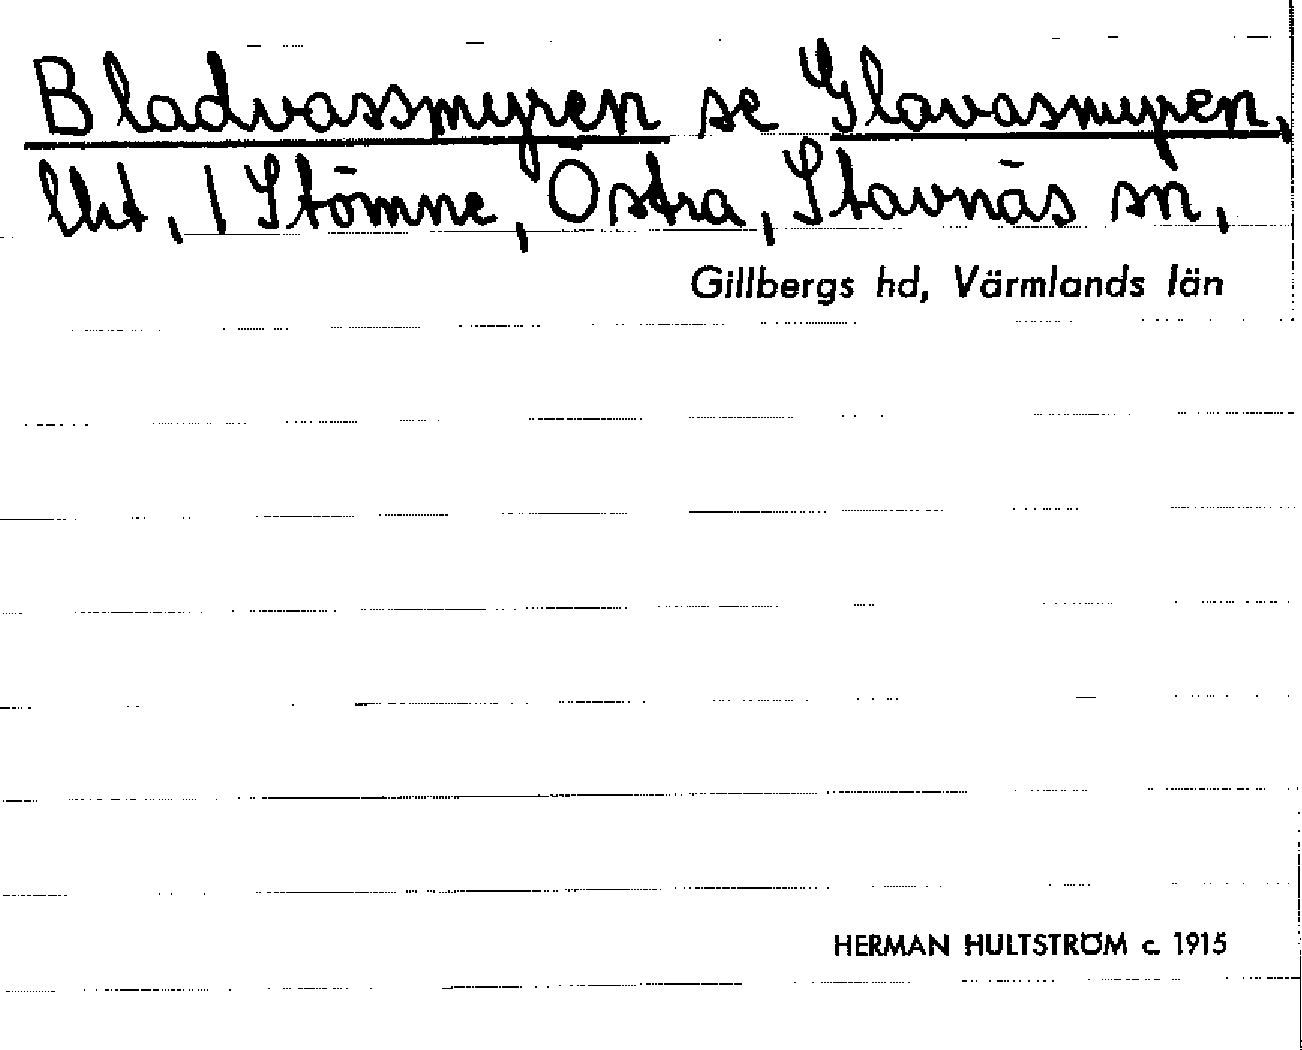 Bladvassmyren se Glavasmyren,
lht, 1 Stömne, Östra, Stavnäs sn,
Gillbergs hd, Värmlands län
HERMAN HULTSTRÖM c. 1915